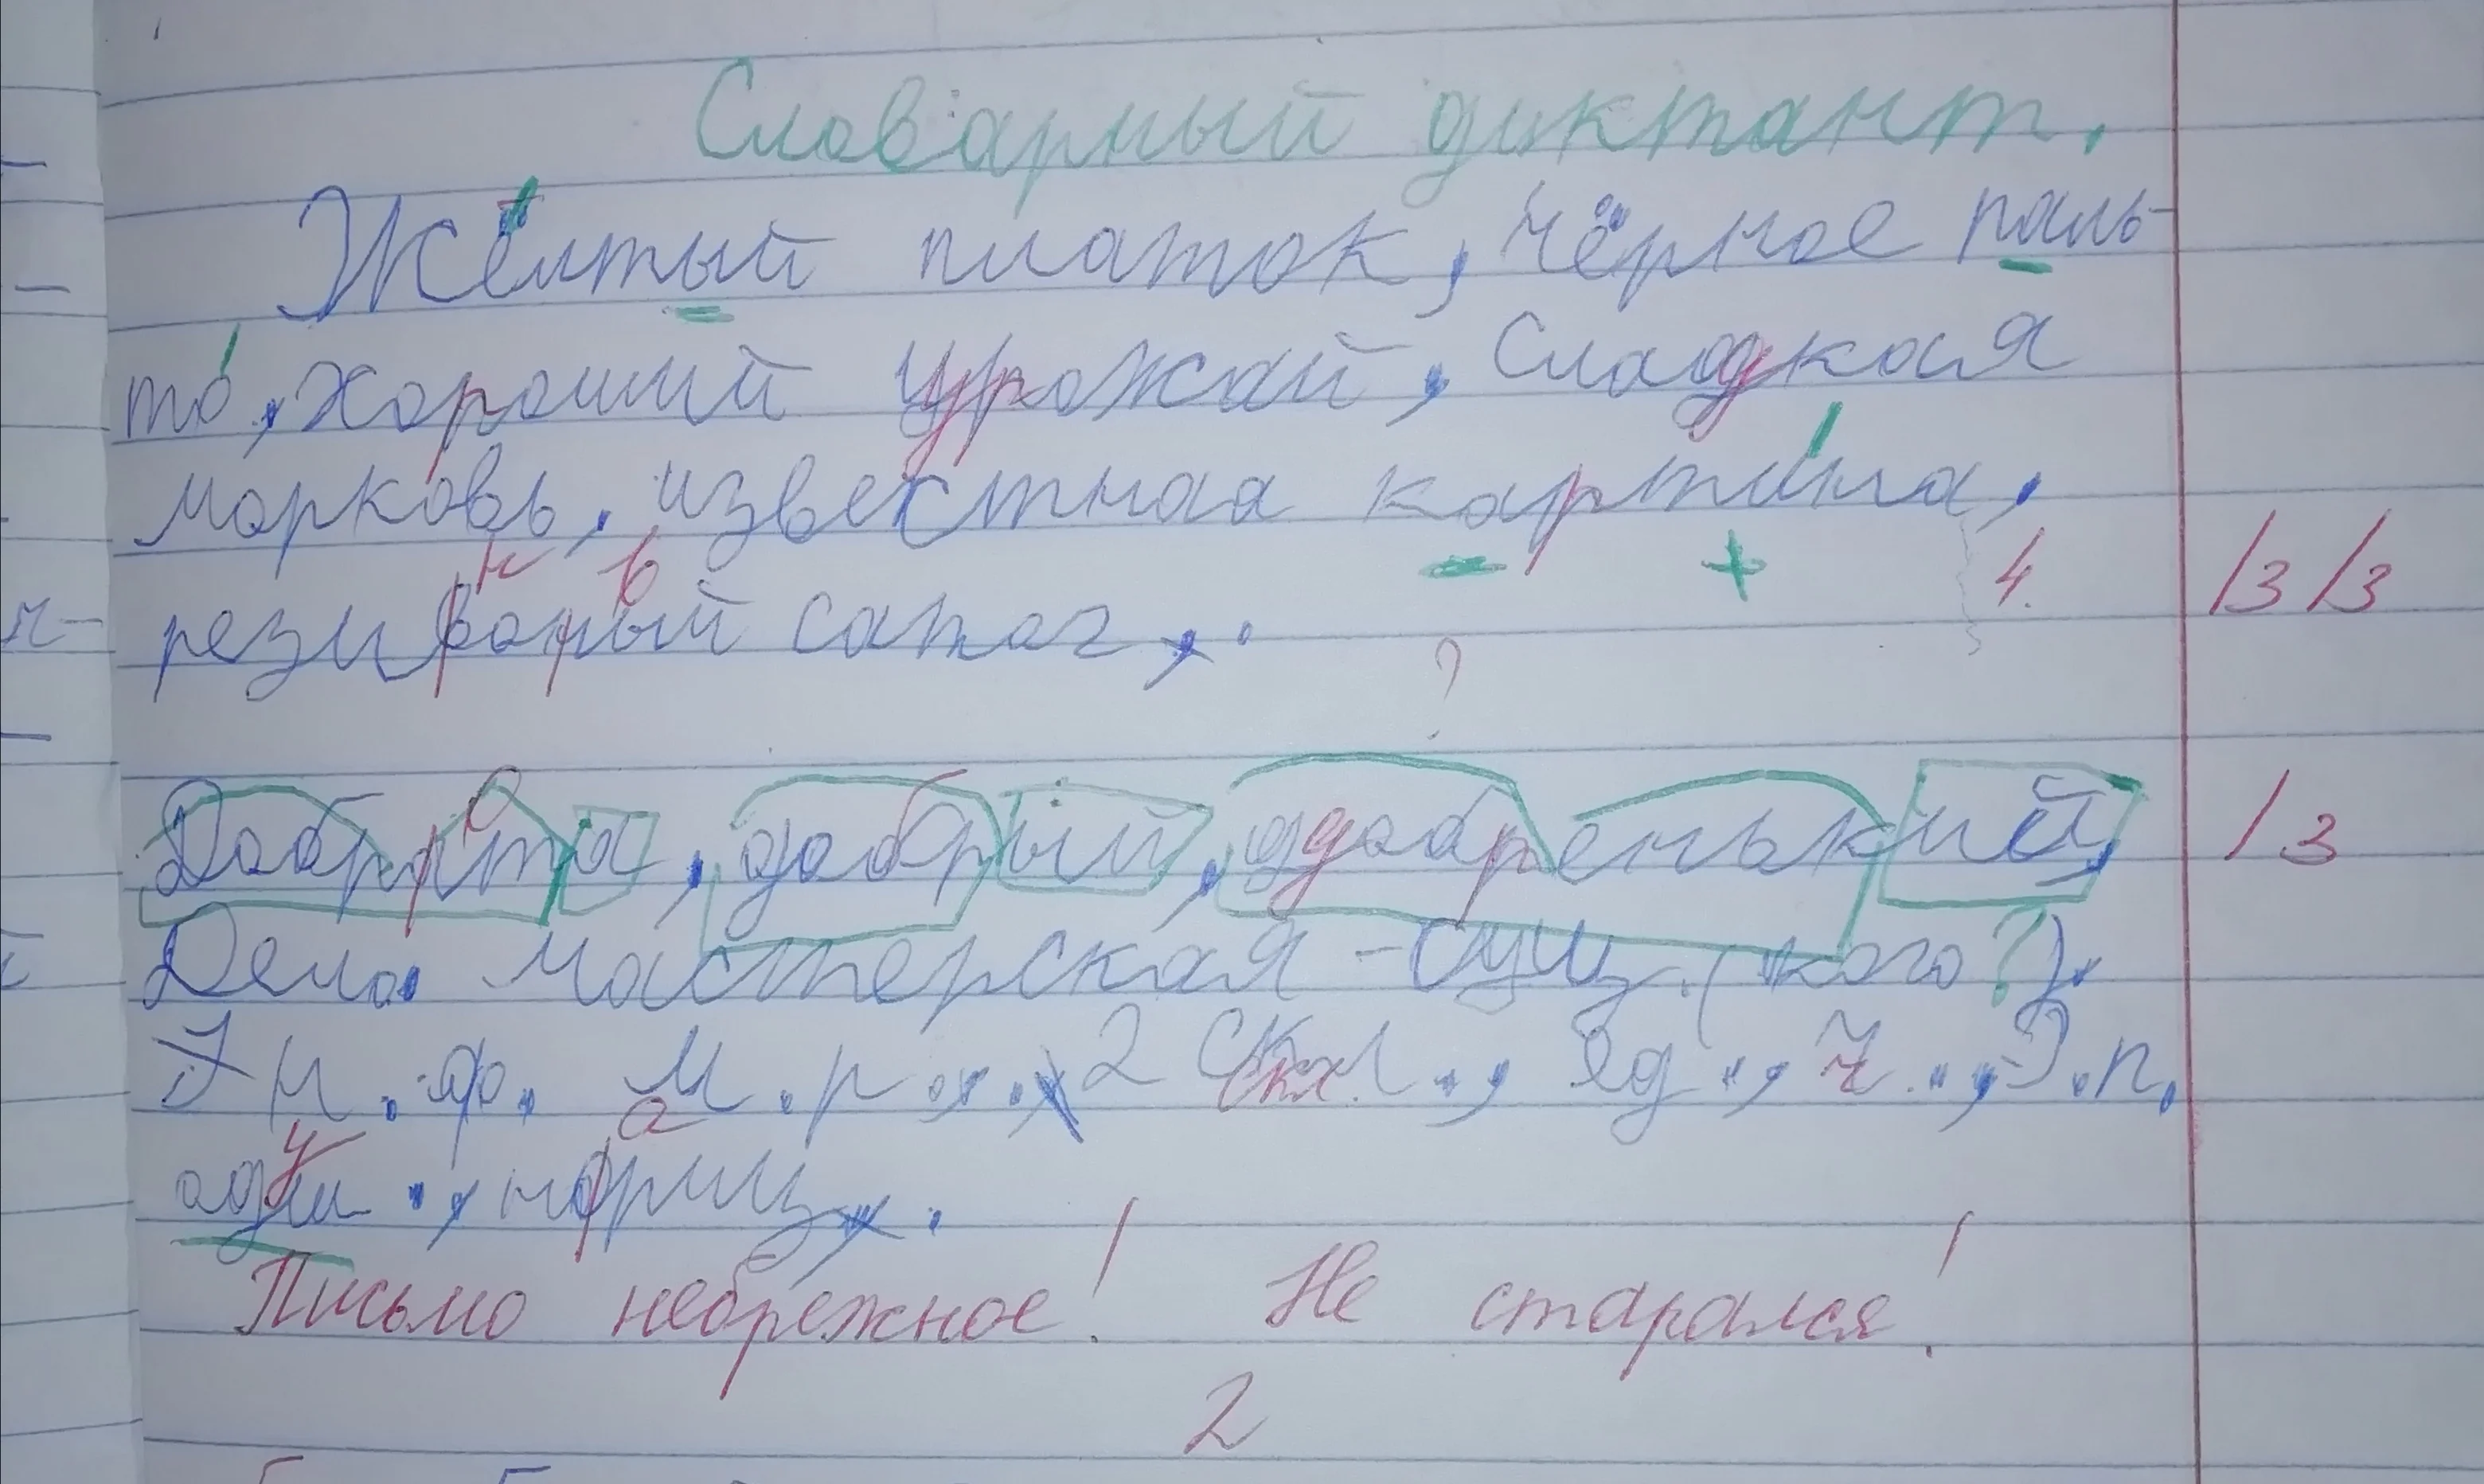 Словарный диктант.
Жёлтый платок, чёрное паль-
то, хороший урожай, сладкая
морковь, известная картина,
4. /3 /3
н в
сапог,.
?
о
, добрый, ддобренький,
/3
Дело. Мастерская - сущ. (кого?).
Н.ф. м.р., 2 скл., Ед., ч., Э.п,
у а
Письмо небрежное! Не старался!
2